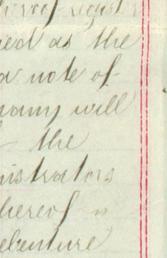 hereof regist
ned as the
a note of
pany will
the
nistrators
hereof
debenture